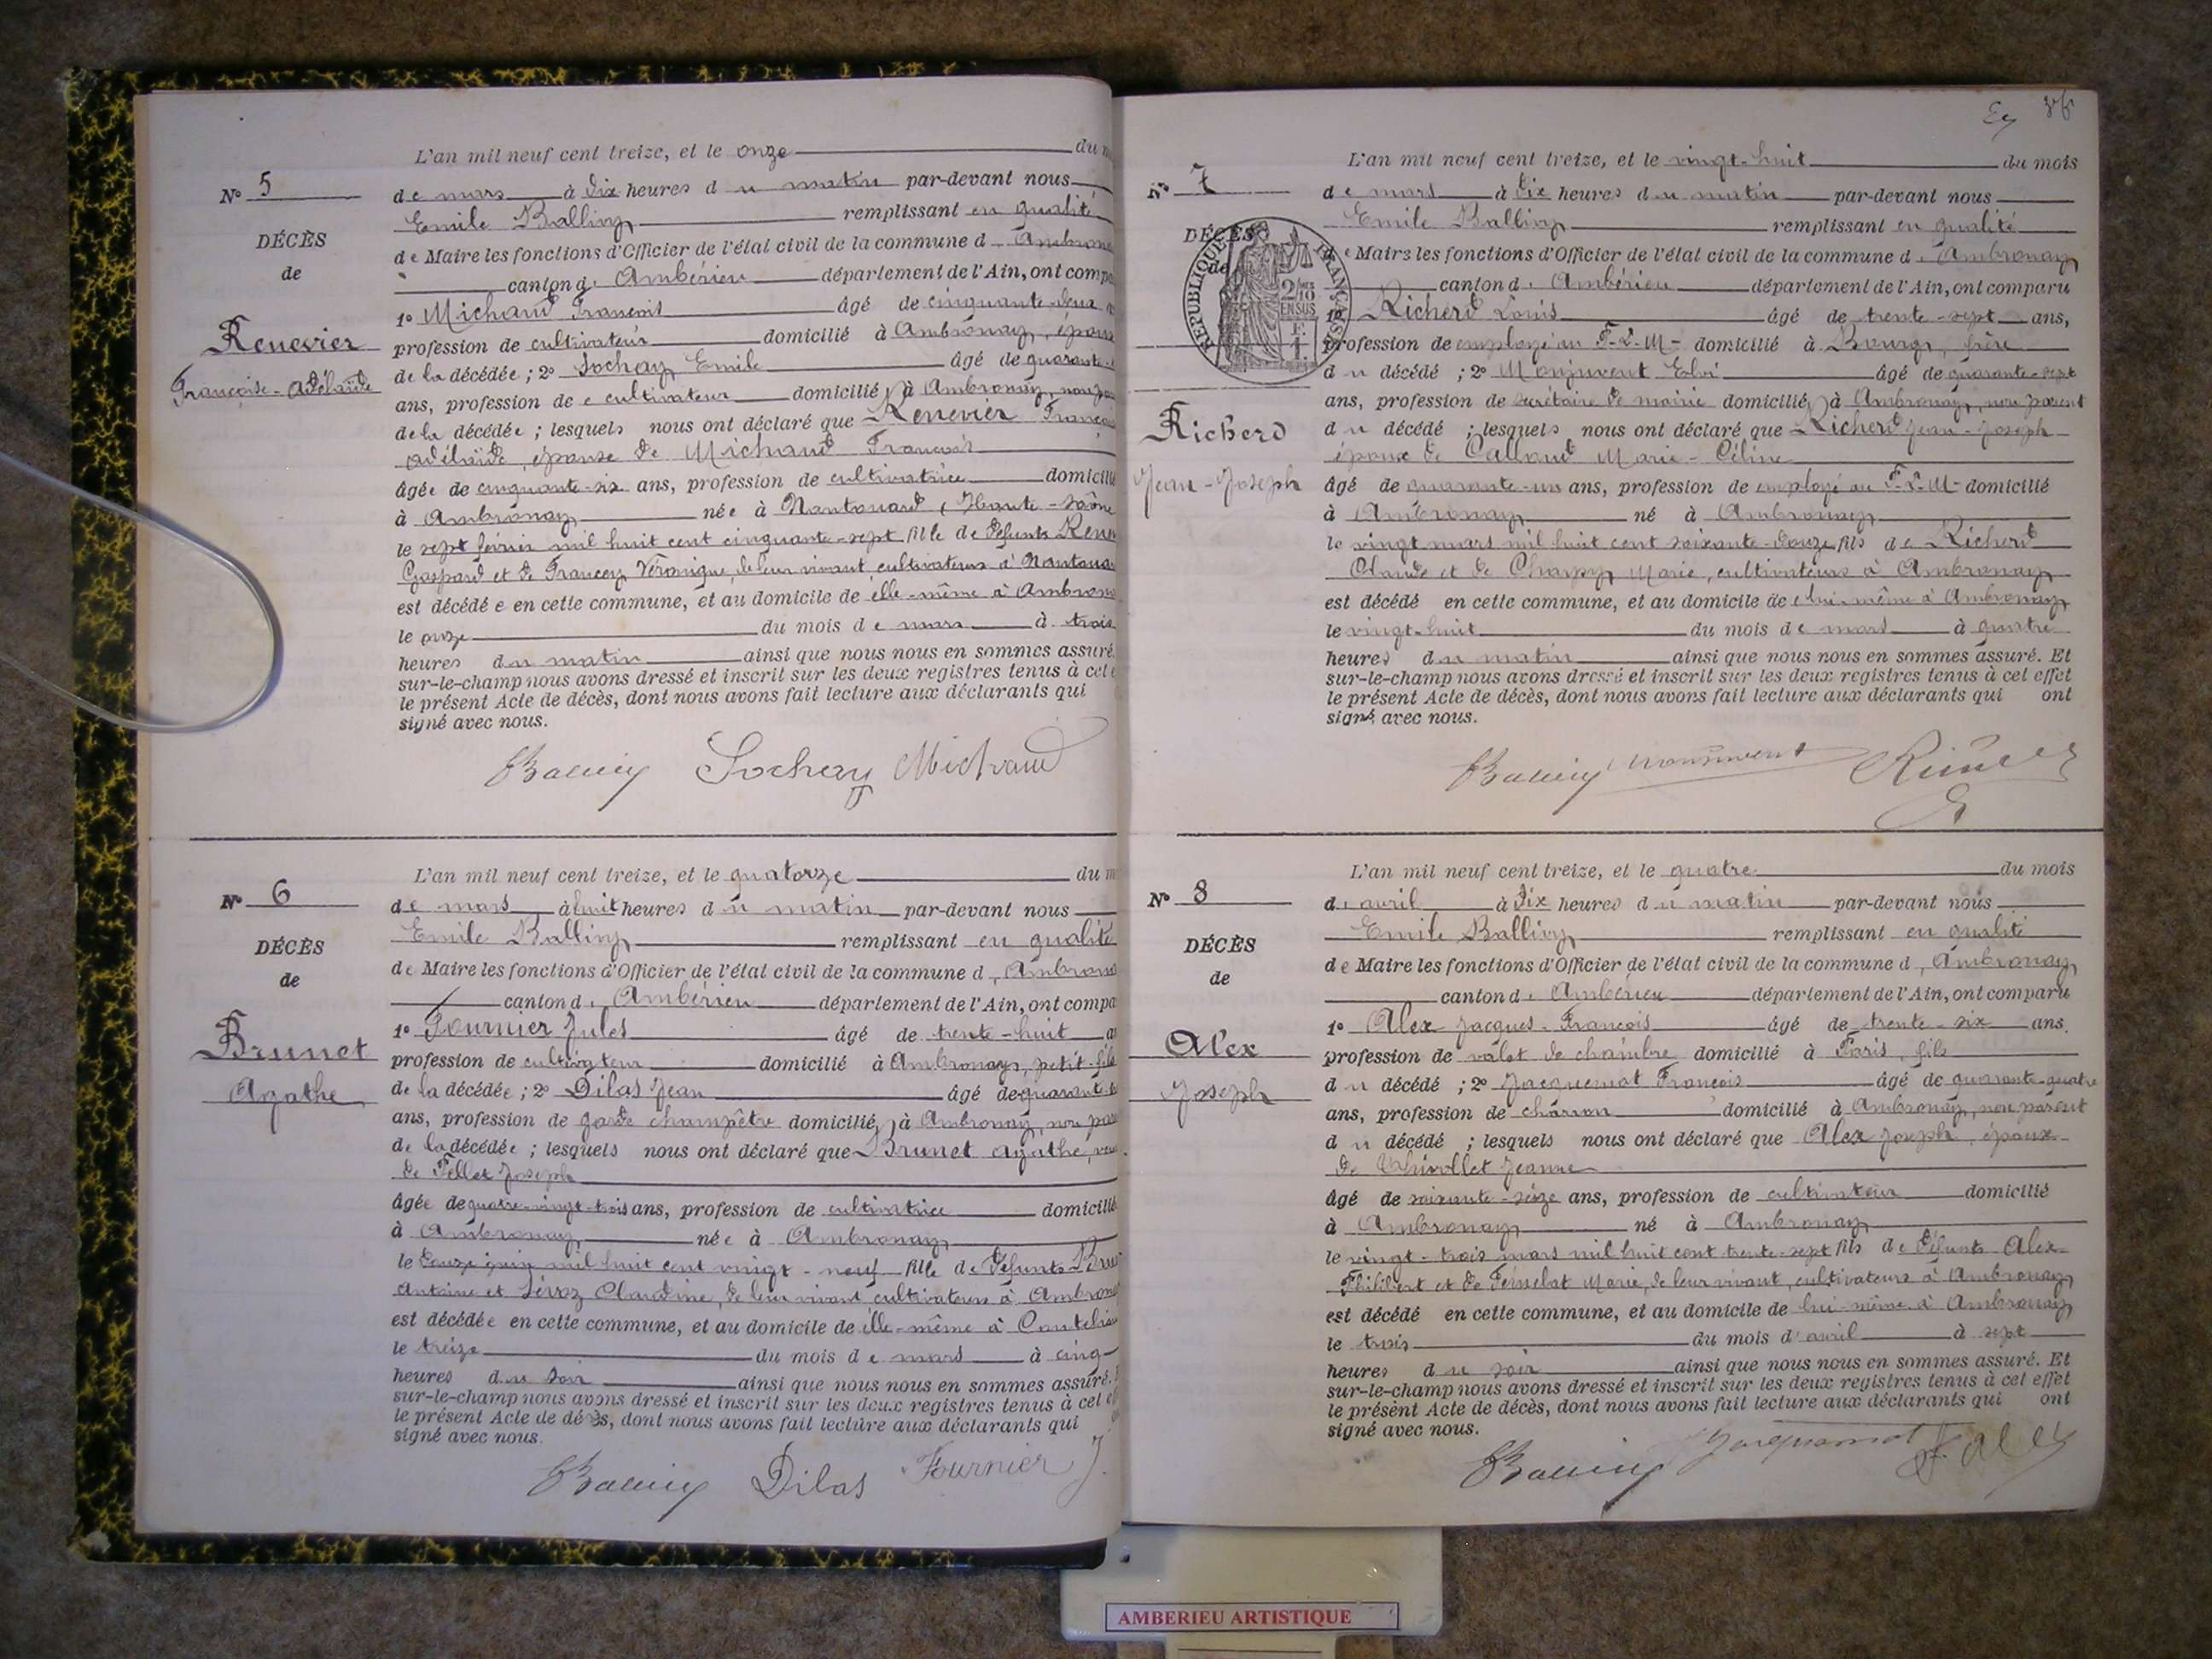 L'an mil neuf cent treize, et le onze du m
N° 5
de mars à dix heures du matin par-devant nous
Emile Ballivy remplissant en qualité
DÉCÈS
de Maire les fonctions d'Officier de l'état civil de la commune d' Ambrona
de
canton d' Ambérieu département de l'Ain, ont compa
1° Michaud François âgé de cinquante-deux a
Renevier
profession de cultivateur domicilié à Ambronay, époux
Françoise-Adélaïde
de la décédée ; 2° Sochay Emile âgé de quarante-
ans, profession de cultivateur domicilié à Ambronay, non pa
de la décédée ; lesquels nous ont déclaré que Renevier Françoi
Adélaïde, épouse de Michaud François
âgée de cinquante-six ans, profession de cultivatrice domicilié
à Ambronay née à Nantouard, Haute-Saône
le sept février mil huit cent cinquante-sept fille de défunts Rene
Gaspard et de Francey Véronique, de leur vivant cultivateurs à Nantoua
est décédée en cette commune, et au domicile de elle-même à Ambrona
le onze du mois de mars à trois
heures du matin ainsi que nous nous en sommes assuré.
sur-le-champ nous avons dressé et inscrit sur les deux registres tenus à cet e
le présent Acte de décès, dont nous avons fait lecture aux déclarants qui
signé avec nous.
Ballivy Sochay Michaud
L'an mil neuf cent treize, et le quatorze du m
N° 6
de mars à huit heures du matin par-devant nous
Emile Ballivy remplissant en qualité
DÉCÈS
de Maire les fonctions d'Officier de l'état civil de la commune d' Ambrona
de
canton d' Ambérieu département de l'Ain, ont compa
1° Fournier Jules âgé de trente-huit a
Brunet
profession de cultivateur domicilié à Ambronay, petit-fils
Agathe
de la décédée ; 2° Dilas Jean âgé de quarante-
ans, profession de garde champêtre domicilié à Ambronay, non pa
de la décédée ; lesquels nous ont déclaré que Brunet Agathe, veu
de Joseph
âgée de quatre-vingt-trois ans, profession de cultivatrice domicilié
à Ambronay née à Ambronay
le douze juin mil huit cent vingt-neuf fille de défunts Bru
Antoine et Claudine, de leur vivant cultivateurs à Ambrona
est décédée en cette commune, et au domicile de elle-même à
le treize du mois de mars à cinq
heures du soir ainsi que nous nous en sommes assuré.
sur-le-champ nous avons dressé et inscrit sur les deux registres tenus à cet ef
le présent Acte de décès, dont nous avons fait lecture aux déclarants qui
signé avec nous.
Ballivy Dilas Fournier J.
L'an mil neuf cent treize, et le vingt-huit du mois
N° 7
de mars à dix heures du matin par-devant nous
Emile Ballivy remplissant en qualité
DÉCÈS
de Maire les fonctions d'Officier de l'état civil de la commune d' Ambronay
de
canton d' Ambérieu département de l'Ain, ont comparu
RÉPUBLIQUE FRANÇAISE
2/10 EN SUS
1° Richerd Louis âgé de trente-sept ans,
profession de employé au P-L-M- domicilié à Bourg, frère
du décédé ; 2° Monjuvent Elvi âgé de quarante-sept
ans, profession de secrétaire de mairie domicilié à Ambronay, non parent
Richerd
du décédé ; lesquels nous ont déclaré que Richerd Jean-Joseph
époux de Callaud Marie-Céline
Jean-Joseph
âgé de quarante-un ans, profession de employé au P-L-M- domicilié
à Ambronay né à Ambronay
le vingt mars mil huit cent soixante-douze fils de Richerd
Claude et de Charpy Marie, cultivateurs à Ambronay
est décédé en cette commune, et au domicile de lui-même à Ambronay
le vingt-huit du mois de mars à quatre
heures du matin ainsi que nous nous en sommes assuré. Et
sur-le-champ nous avons dressé et inscrit sur les deux registres tenus à cet effet
le présent Acte de décès, dont nous avons fait lecture aux déclarants qui ont
signé avec nous.
Ballivy Monjuvent
L'an mil neuf cent treize, et le quatre du mois
N° 8
d' avril à dix heures du matin par-devant nous
Emile Ballivy remplissant en qualité
DÉCÈS
de Maire les fonctions d'Officier de l'état civil de la commune d' Ambronay
de
canton d' Ambérieu département de l'Ain, ont comparu
1° Alex Jacques-François âgé de trente-six ans.
Alex
profession de valet de chambre domicilié à Paris, fils
Joseph
du décédé ; 2° Jacquemot François âgé de quarante-quatre
ans, profession de charron domicilié à Ambronay, non parent
du décédé ; lesquels nous ont déclaré que Alex Joseph, époux
de Thivollet Jeanne
âgé de soixante-seize ans, profession de cultivateur domicilié
à Ambronay né à Ambronay
le vingt-trois mars mil huit cent trente-sept fils de défunts Alex
Philibert et de Marie, de leur vivant, cultivateurs à Ambronay
est décédé en cette commune, et au domicile de lui-même à Ambronay
le trois du mois d'avril à sept
heures du soir ainsi que nous nous en sommes assuré. Et
sur-le-champ nous avons dressé et inscrit sur les deux registres tenus à cet effet
le présent Acte de décès, dont nous avons fait lecture aux déclarants qui ont
signé avec nous.
Ballivy Jacquemot F. Alex
AMBERIEU ARTISTIQUE